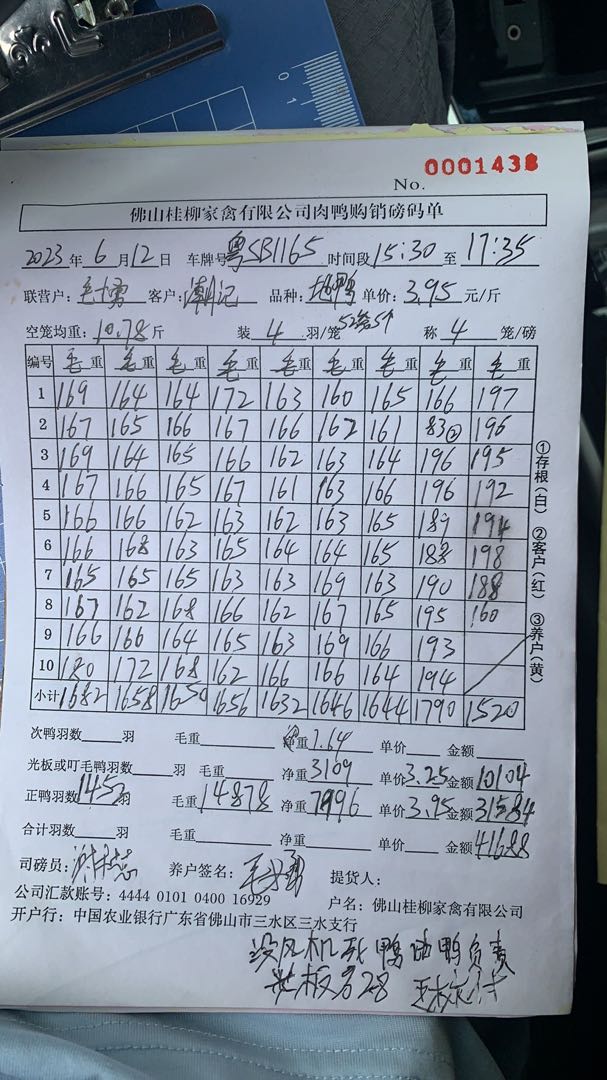 No. 0001438
佛山桂柳家禽有限公司肉鸭购销磅码单
2023年6月12日 车牌号粤SB1165 时间段15:30至17:35
联营户: 客户:潮记 品种: 单价:3.95元/斤
空笼均重:10.78斤 装4羽/笼 称4笼/磅
编号 毛重 毛重 毛重 毛重 毛重 毛重 毛重 毛重 毛重
1 169 164 164 172 163 160 165 166 197
2 167 165 166 167 166 162 161 83② 196
3 169 164 165 166 162 163 164 196 195
4 167 166 165 167 161 163 166 196 192
5 166 166 162 163 162 163 165 189 194
6 166 168 163 165 164 164 165 188 198
7 165 165 165 163 163 169 163 190 188
8 167 162 168 166 162 167 165 195 160
9 166 166 164 165 163 169 166 193
10 180 172 168 162 166 166 164 194
小计 1682 1658 1650 1656 1632 1646 1644 1790 1520
①存根(白) ②客户(红) ③养户(黄)
次鸭羽数 羽 毛重 净重7.64 单价 金额
光板或叮毛鸭羽数 羽 毛重 净重3109 单价3.25 金额10104
正鸭羽数1452羽 毛重14878 净重7996 单价3.95 金额31584
合计羽数 羽 毛重 净重 单价 金额41688
司磅员: 养户签名: 提货人:
公司汇款账号: 4444 0101 0400 16929 户名: 佛山桂柳家禽有限公司
开户行: 中国农业银行广东省佛山市三水区三水支行
没风机死鸭 鸭负责
光板 28